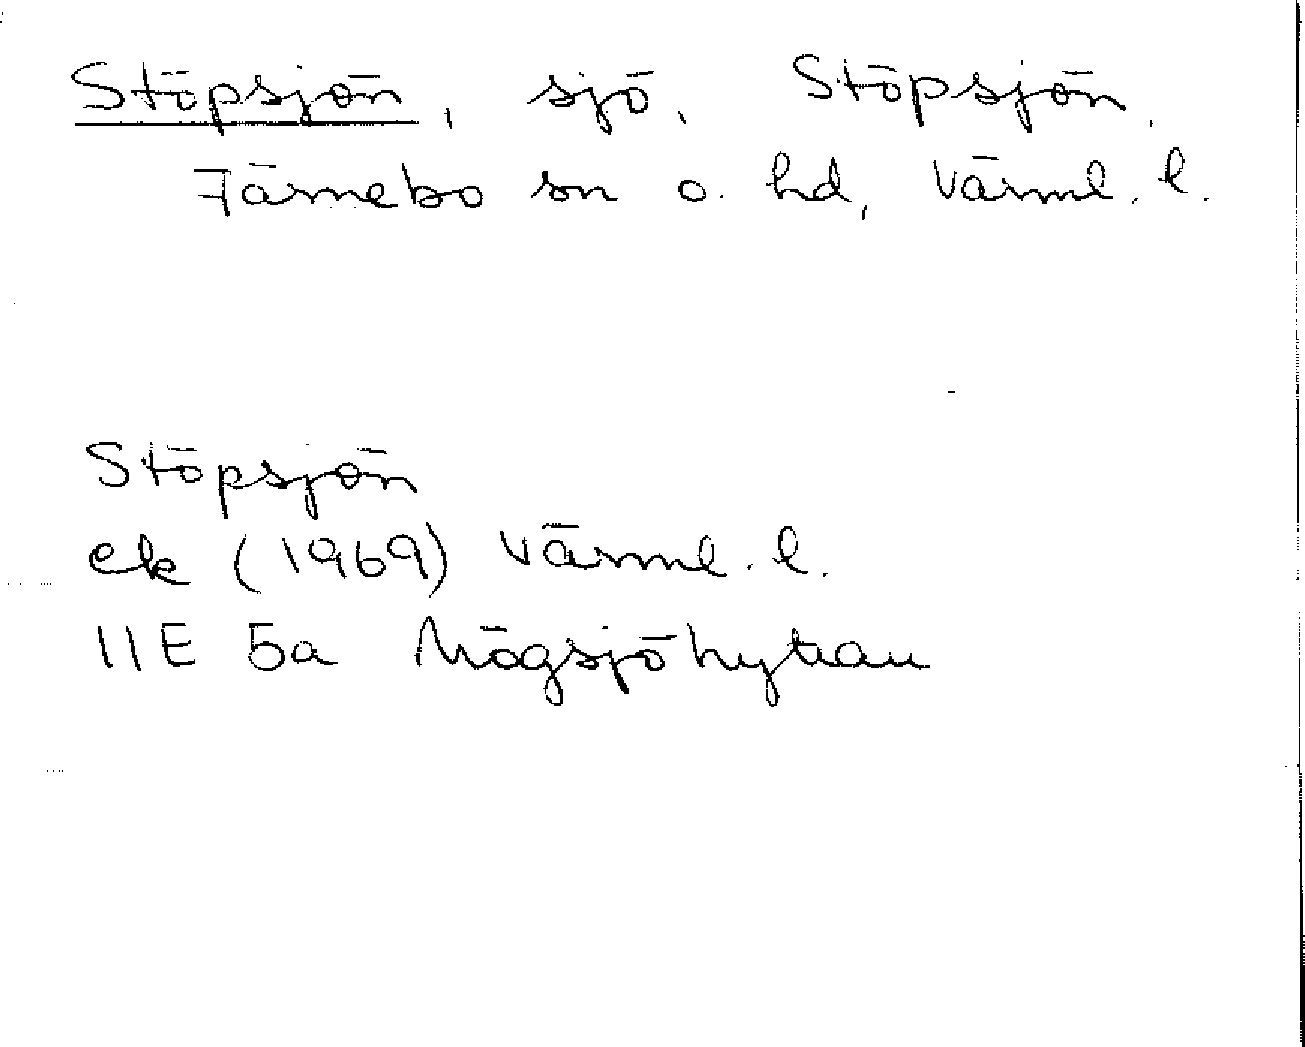 Stöpsjön, sjö, Stöpsjön,
Färnebo sn o. hd, Värml. l.
Stöpsjön
ek (1969) Värml. l.
11E 5a Mögsjöhyttan